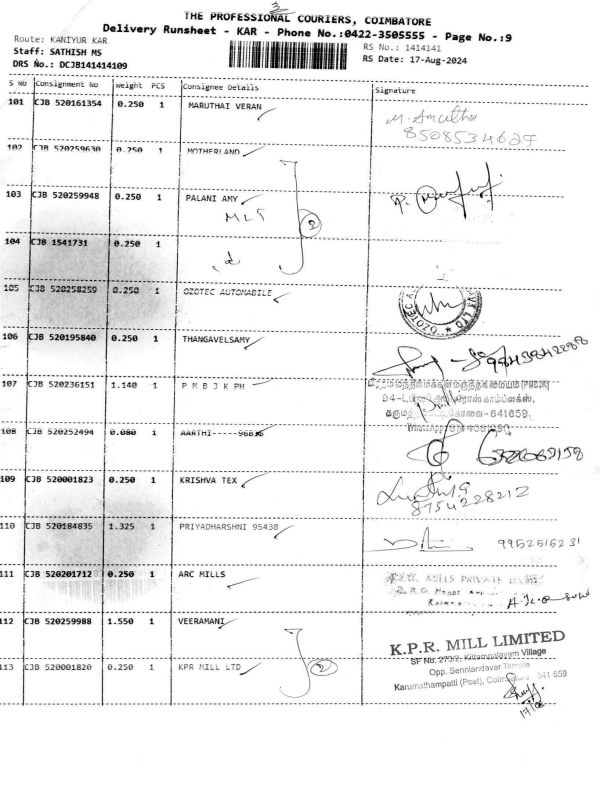 THE PROFESSIONAL COURIERS, COIMBATORE
Delivery Runsheet - KAR - Phone No.:0422-3505555 - Page No.:9
Route: KANIYUR KAR
RS No.: 1414141
Staff: SATHISH MS
RS Date: 17-Aug-2024
DRS No.: DCJB141414109
S No Consignment No Weight PCS Consignee Details Signature
101 CJB 520161354 0.250 1 MARUTHAI VERAN
8508534627
102 CJB 520259630 0.250 1 MOTHERLAND
103 CJB 520259948 0.250 1 PALANI AMY
MLS
2
104 CJB 1541731 0.250 1
105 CJB 520258259 0.250 1 OZOTEC AUTOMABILE
106 CJB 520195840 0.250 1 THANGAVELSAMY
107 CJB 520236151 1.140 1 P M B J K PH
108 CJB 520252494 0.080 1 AARTHI
109 CJB 520001823 0.250 1 KRISHVA TEX
8754228212
110 CJB 520184835 1.325 1 PRIYADHARSHNI 95438
9952515231
111 CJB 520201712 0.250 1 ARC MILLS
MILLS PRIVATE
112 CJB 520259988 1.550 1 VEERAMANI
K.P.R. MILL LIMITED
SF No. 273/2, Kittampalayam Village
Opp. Senniandavar Temple
113 CJB 520001820 0.250 1 KPR MILL LTD
2
Karumathampatti (Post), Coimbatore 641 659